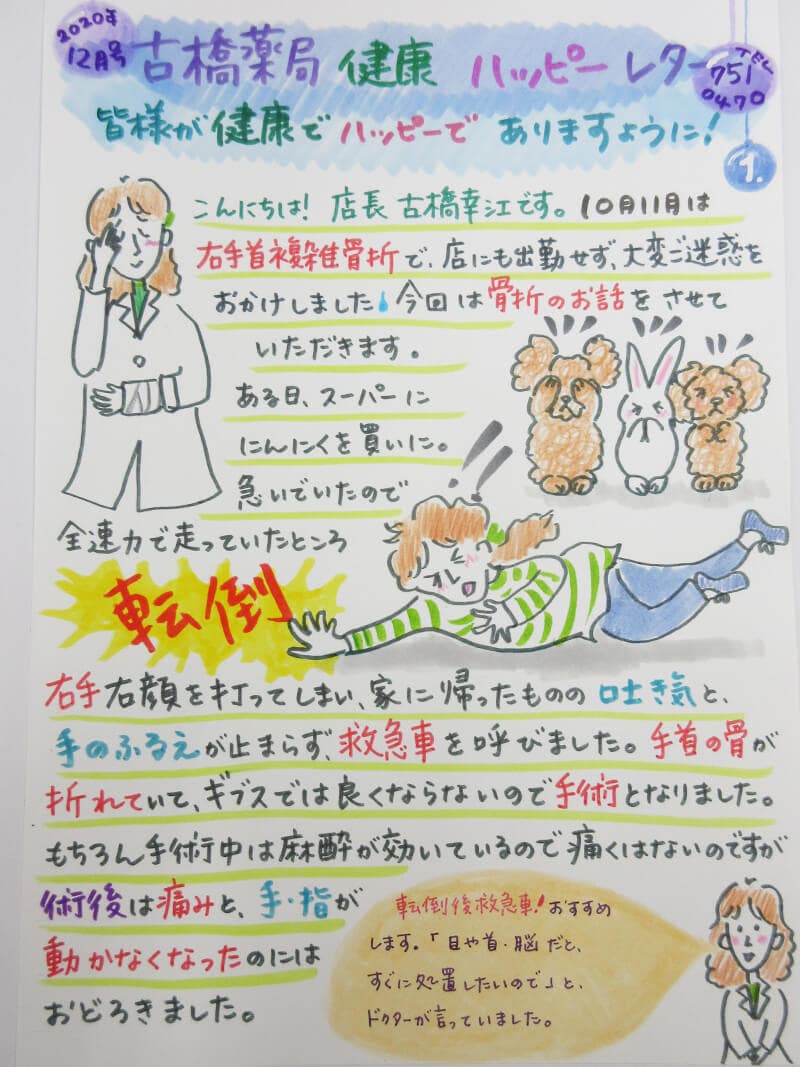 2020年
12月号
古橋薬局 健康 ハッピーレター
TEL
751
0470
皆様が健康でハッピーで ありますように!
1.
こんにちは! 店長 古橋幸江です。10月11月は
右手首複雑骨折で、店にも出勤せず、大変ご迷惑を
おかけしました 今回は骨折のお話をさせて
いただきます。
ある日、スーパーに
にんにくを買いに。
急いでいたので
全速力で走っていたところ
転倒
右手右顔を打ってしまい、家に帰ったものの吐き気と、
手のふるえが止まらず、救急車を呼びました。手首の骨が
折れていて、ギブスでは良くならないので手術となりました。
もちろん手術中は麻酔が効いているので痛くはないのですが
術後は痛みと、手・指が
動かなくなったのには
おどろきました。
転倒後救急車!おすすめ
します。「目や首・脳だと、
すぐに処置したいので」と、
ドクターが言っていました。